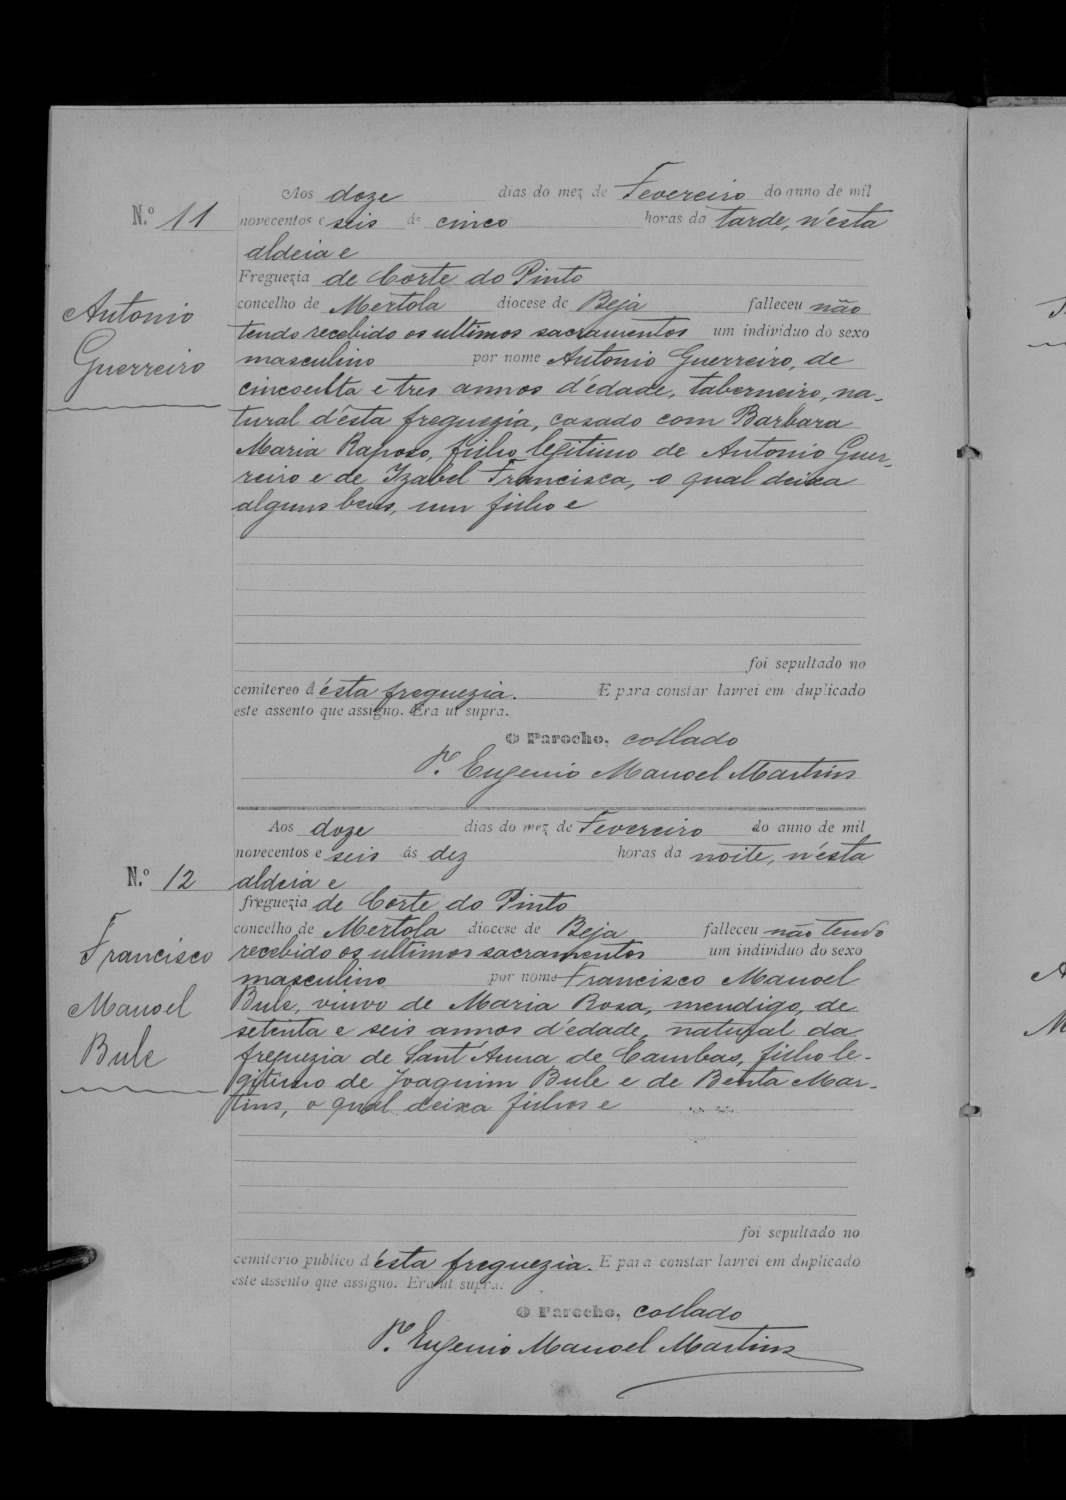 Aos doze dias do mez de Fevereiro do anno de mil
N.º 11
novecentos e seis ás cinco horas da tarde, n'ésta
aldeia e
Freguezia de Córte do Pinto
concelho de Mertola diocese de Beja falleceu não
Antonio
Guerreiro
tendo recebido os ultimos sacramentos um individuo do sexo
masculino por nome Antonio Guerreiro, de
cincoenta e tres annos d'édade, taberneiro, na-
tural d'ésta freguezia, casado com Barbara
Maria Raposo, filho legitimo de Antonio Guer-
reiro e de Izabel Francisca, o qual deixa
alguns bens, um filho e
foi sepultado no
cemitereo d'ésta freguezia. E para constar lavrei em duplicado
este assento que assigno. Era ut supra.
O Parocho, collado
P.e Eugenio Manoel Martins
Aos doze dias do mez de Fevereiro do anno de mil
novecentos e seis ás dez horas da noite, n'ésta
N.º 12
aldeia e
freguezia de Córte do Pinto
concelho de Mertola diocese de Beja falleceu não tendo
Francisco
Manoel
Bule
recebido os ultimos sacramentos um individuo do sexo
masculino por nome Francisco Manoel
Bule, viuvo de Maria Rosa, mendigo, de
setenta e seis annos d'édade, natural da
freguezia de Sant'Anna de Cambas, filho le-
gitimo de Joaquim Bule e de Benta Mar-
tins, o qual deixa filhos e
foi sepultado no
cemiterio publico d'ésta freguezia. E para constar lavrei em duplicado
este assento que assigno. Era ut supra.
O Parocho, collado
P.e Eugenio Manoel Martins